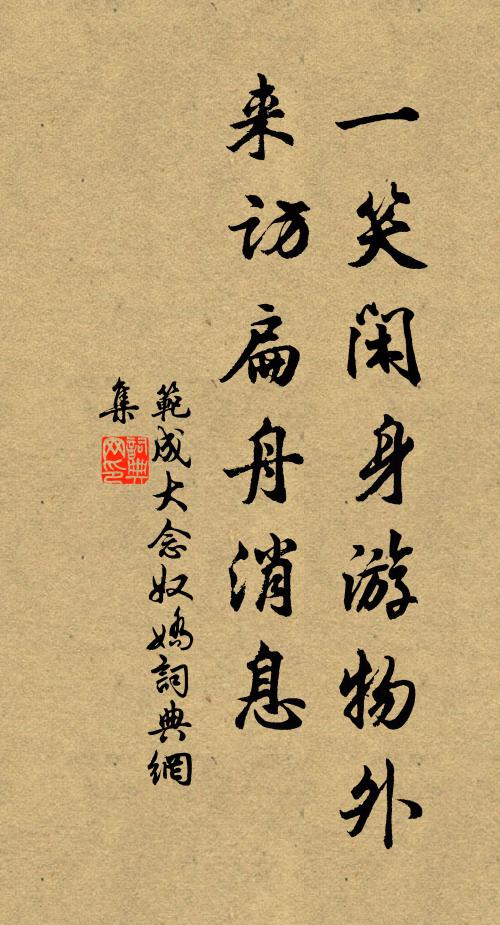 一笑闲身游物外
来访扁舟消息
範成大念奴嬌詞典網
集
詞典
网印